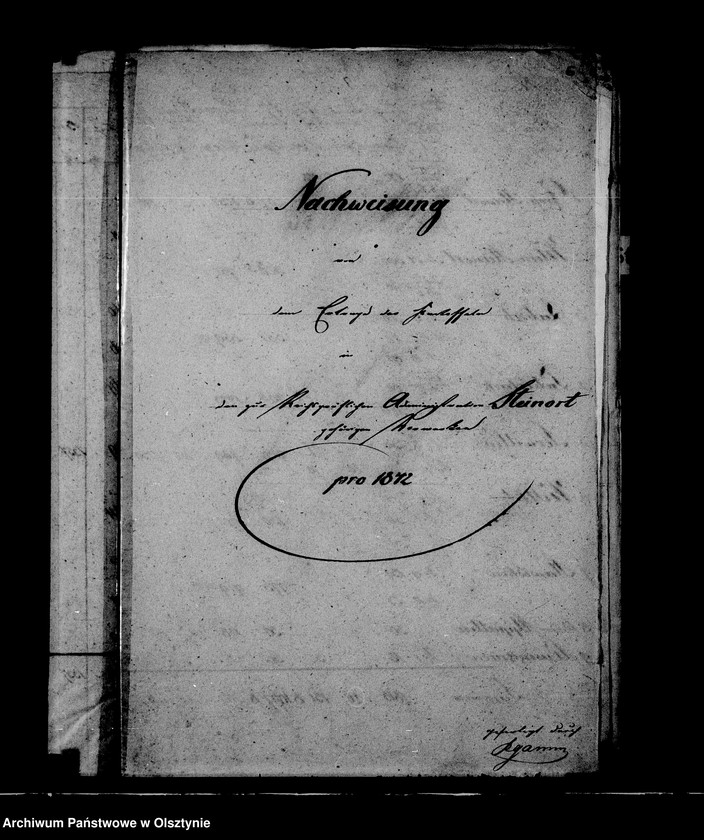 Nachweisung
von
dem Ertrage der Kartoffeln
in
den zur Reichsgräflichen Administration Steinort
gehörigen Vorwerken
pro 1872
gefertigt durch
Archiwum Państwowe w Olsztynie